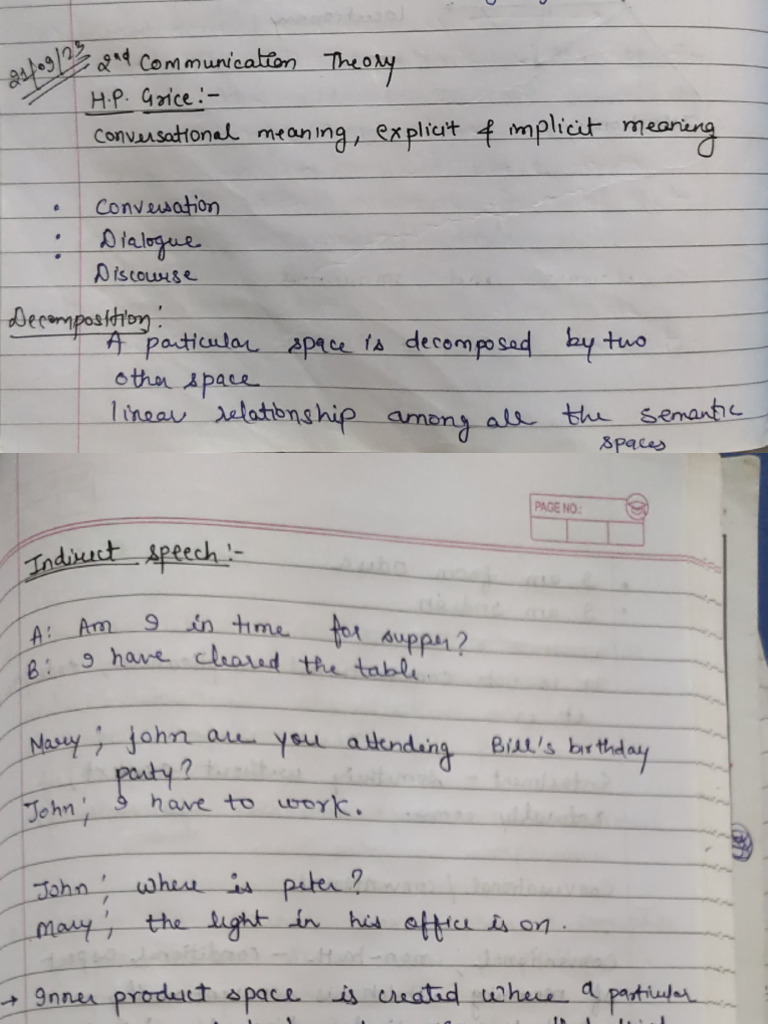 21/09/23 2nd Communication Theory
H.P. Grice:-
Conversational meaning, explicit & implicit meaning
• Conversation
• Dialogue
• Discourse
Decomposition:
A particular space is decomposed by two
other space
linear relationship among all the semantic
spaces
PAGE NO.:
Indirect speech:-
A: Am I in time for supper?
B: I have cleared the table.
Mary; John are you attending Bill's birthday
party?
John; I have to work.
John; where is peter?
Mary; the light in his office is on.
→ Inner product space is created where a particular